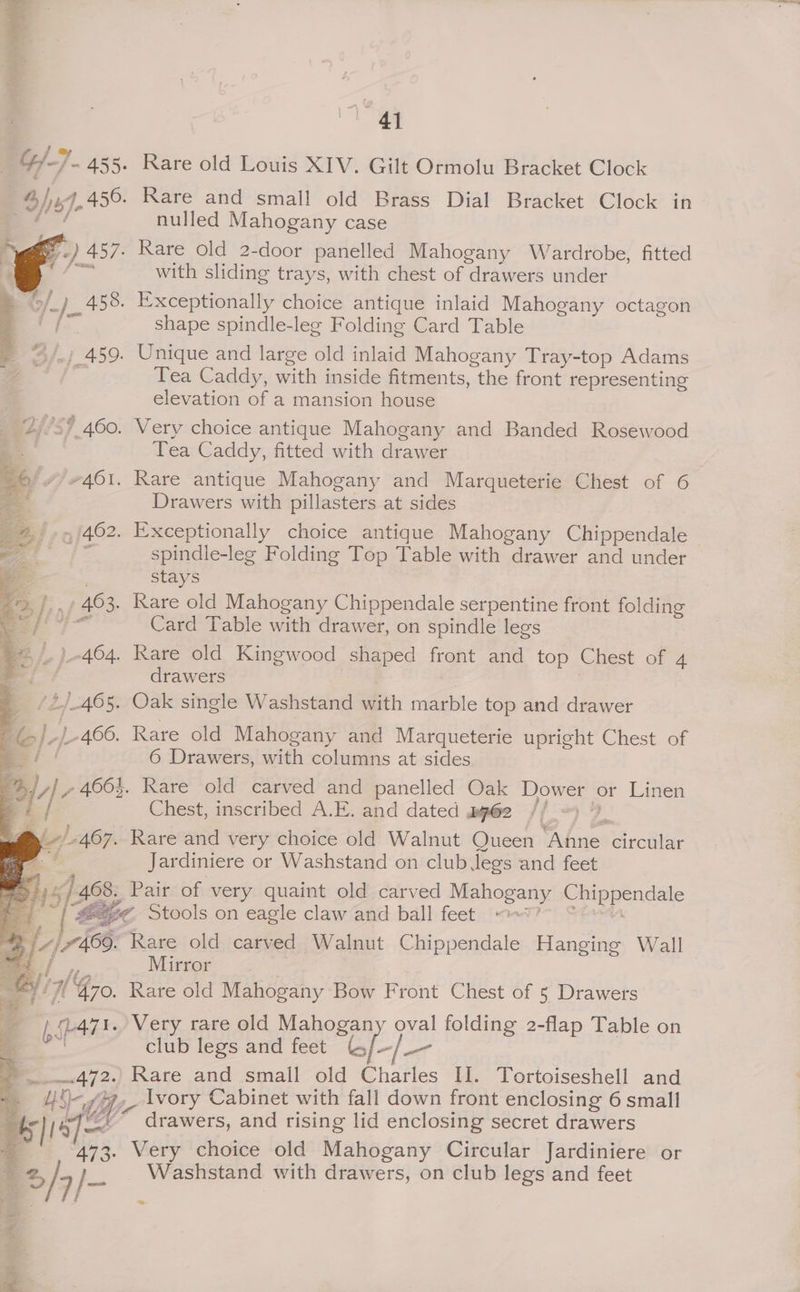 41
455. Rare old Louis XIV. Gilt Ormolu Bracket Clock
456. Rare and small old Brass Dial Bracket Clock in
nulled Mahogany case
457. Rare old 2-door panelled Mahogany Wardrobe, fitted
with sliding trays, with chest of drawers under
458. Exceptionally choice antique inlaid Mahogany octagon
shape spindle-leg Folding Card Table
459. Unique and large old inlaid Mahogany Tray-top Adams
Tea Caddy, with inside fitments, the front representing
elevation of a mansion house
460. Very choice antique Mahogany and Banded Rosewood
Tea Caddy, fitted with drawer
461. Rare antique Mahogany and Marqueterie Chest of 6
Drawers with pillasters at sides
462. Exceptionally choice antique Mahogany Chippendale
spindle-leg Folding Top Table with drawer and under
stays
463. Rare old Mahogany Chippendale serpentine front folding
Card Table with drawer, on spindle legs
464. Rare old Kingwood shaped front and top Chest of 4
drawers
465. Oak single Washstand with marble top and drawer
466. Rare old Mahogany and Marqueterie upright Chest of
6 Drawers, with columns at sides
Rare old carved and panelled Oak Dower or Linen
Chest, inscribed A.E. and dated
467. Rare and very choice old Walnut Queen Anne circular
Jardiniere or Washstand on club legs and feet
468. Pair of very quaint old carved Mahogany Chippendale
Stools on eagle claw and ball feet
469. Rare old carved Walnut Chippendale Hanging Wall
Mirror
470. Rare old Mahogany Bow Front Chest of 5 Drawers
471. Very rare old Mahogany oval folding 2-flap Table on
club legs and feet 6/-/-
472. Rare and small old Charles II. Tortoiseshell and
Ivory Cabinet with fall down front enclosing 6 small
drawers, and rising lid enclosing secret drawers
473. Very choice old Mahogany Circular Jardiniere or
Washstand with drawers, on club legs and feet